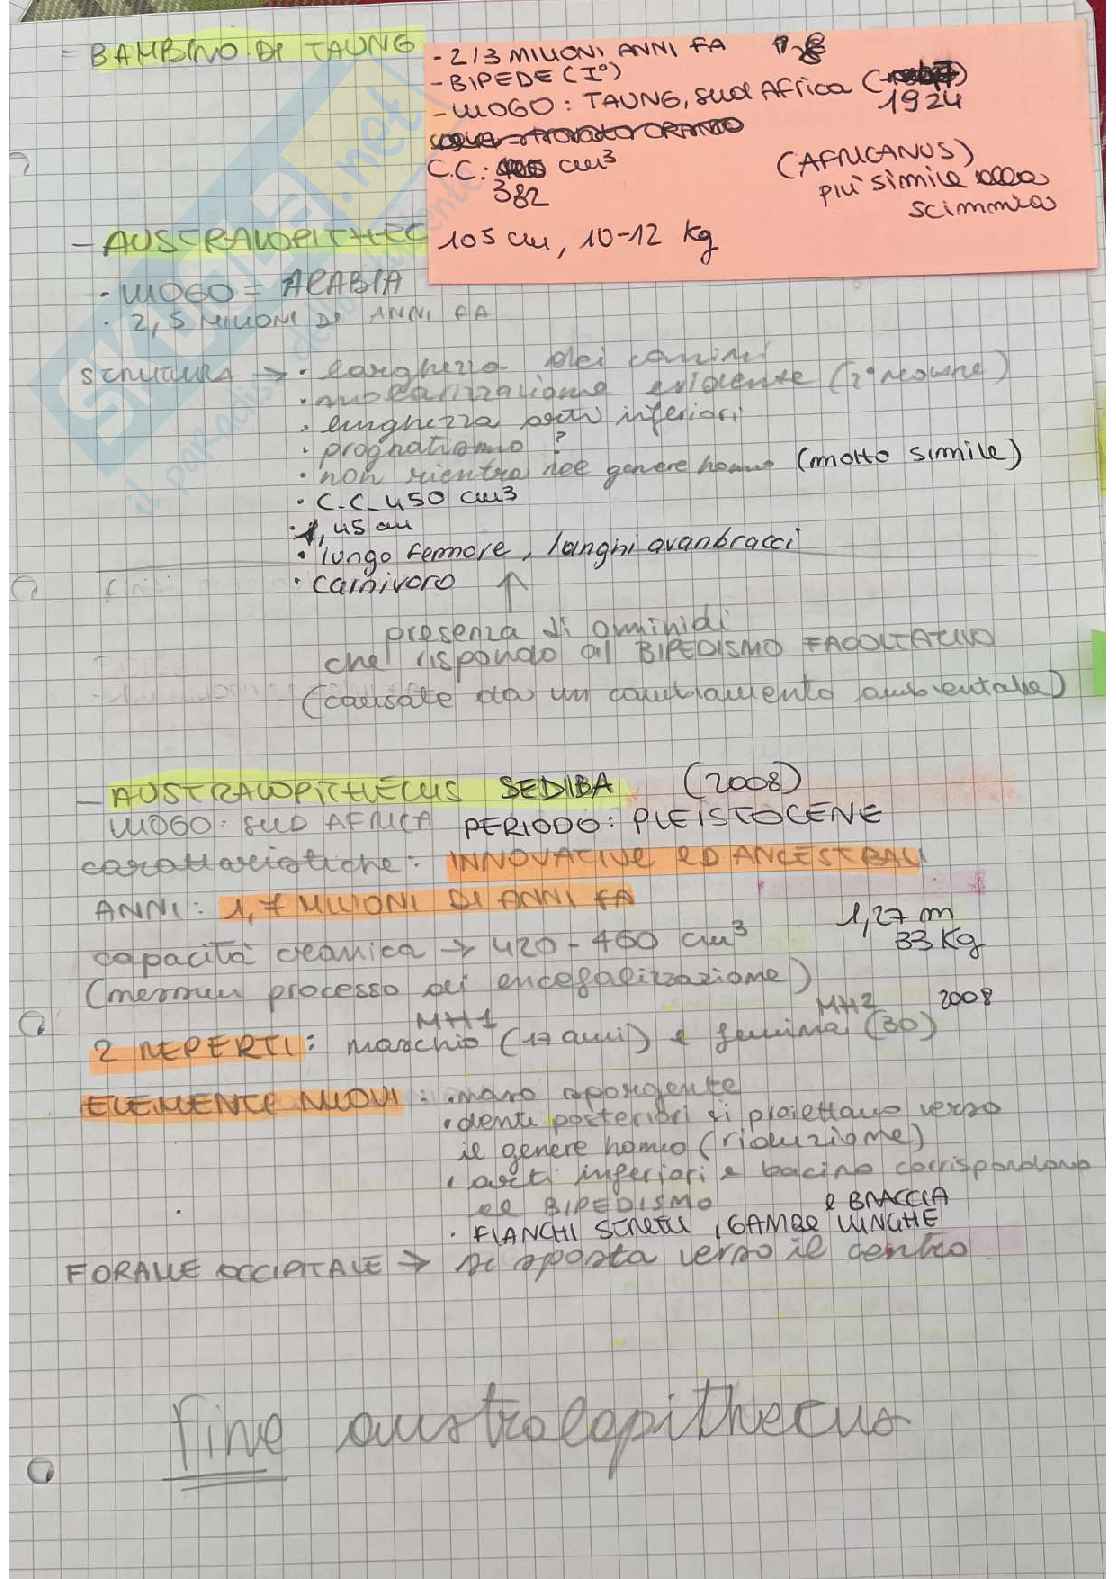 = BAMBINO DI TAUNG
- 2/3 MILIONI ANNI FA
- BIPEDE (I°)
- LUOGO: TAUNG, sud Africa
1924
C.C: cm³
382
(AFRICANUS)
più simile alla
scimmia
105 cm, 10-12 kg
- AUSTRALOPITHEC
· LUOGO = ARABIA
· 2,5 MILIONI DI ANNI FA
STRUTTURA → · larghezza dei canini
· evidente
· lunghezza arti inferiori
· prognatismo ?
· non rientra nel genere homo (molto simile)
· C.C. 450 cm³
· 1,45 cm
· lungo femore, lunghi avanbracci
· carnivoro ↑
presenza di ominidi
che rispondo al BIPEDISMO FACOLTATIVO
(causate da un cambiamento ambientale)
- AUSTRALOPITHECUS SEDIBA (2008)
LUOGO: SUD AFRICA PERIODO: PLEISTOCENE
caratteristiche: INNOVATIVE ED ANCESTRALI
ANNI: 1,7 MILIONI DI ANNI FA
1,27 m
33 Kg
capacità cranica → 420-460 cm³
(nessun processo di encefalizzazione)
MH1 MH2 2008
2 REPERTI: maschio (17 anni) e femmina (30)
ELEMENTI NUOVI: · mano
· denti posteriori si proiettano verso
il genere homo (riduzione)
· arti inferiori e bacino corrispondono
al BIPEDISMO
· FIANCHI STRETTI, GAMBE e BRACCIA LUNGHE
FORAME OCCIPITALE → si sposta verso il centro
fine australopithecus
SKUOLA.net